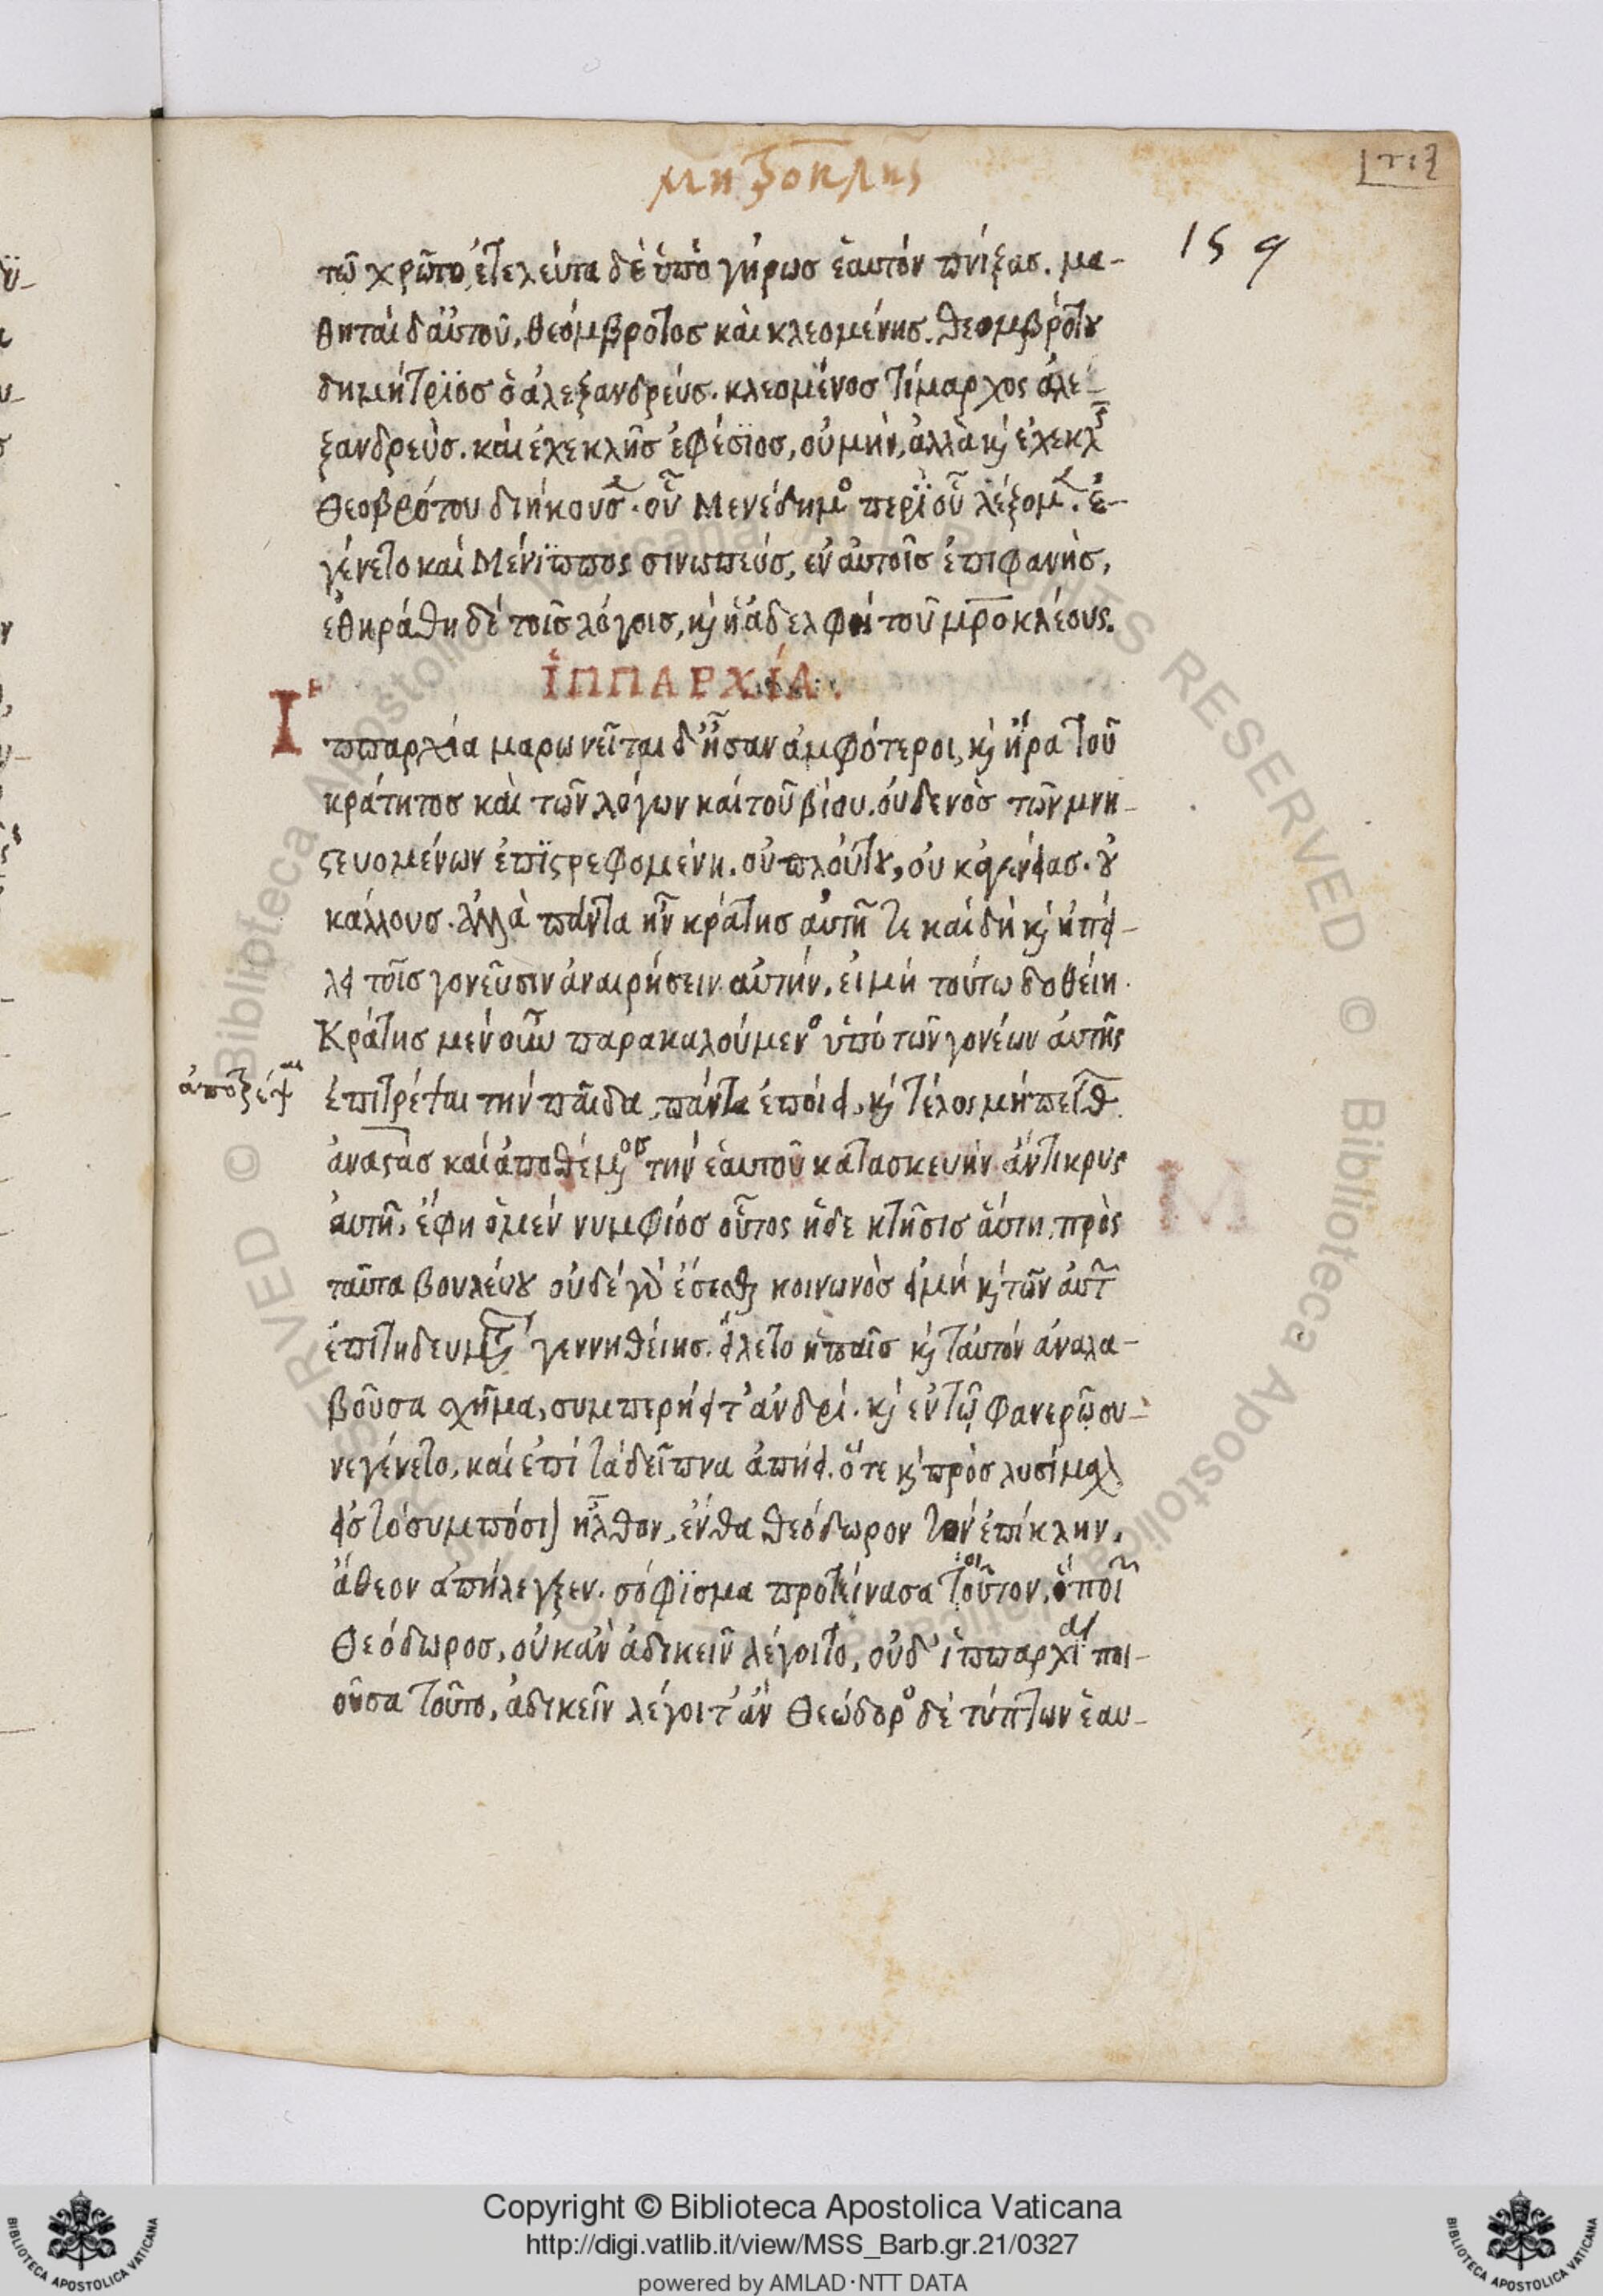 μητροκλῆς
159
τῶ χρῶτο, ἐτελεύτα δὲ ὑπὸ γήρωσ ἑαυτόν πνίξας. μα-
θηταὶ δ' αὐτοῦ, θεόμβροτοσ καὶ κλεομένησ. θεομβρότου
δημήτρϊοσ ὁ ἀλεξανδρεύσ. κλεομένοσ τίμαρχος ἀλε-
ξανδρεὺσ. καὶ ἐχεκλῆσ ἐφέσϊος, οὐ μὴν, ἀλλὰ κ ἐχεκλῆς
θεοβρότου διήκουσε. οὗ Μενέδημος περϊ οὗ λέξομεν. ἐ-
γένετο καὶ Μένϊππος σινωπεύσ, ἐν αὐτοῖσ ἐπιφανὴσ,
ἐθηράθη δὲ τοῖσ λόγοισ, κ ἡ ἀδελφὴ τοῦ μητροκλέους.
ἹΠΠΑΡΧΊΑ.
Ἱ
ππαρχία μαρωνεῖται δ' ἦσαν ἀμφότεροι, κ ἤρα τοῦ
κράτητοσ καὶ τῶν λόγων καὶ τοῦ βίου. οὐδενὸσ τῶν μνη-
στευομένων ἐπϊστρεφομένη. οὐ πλούτου, οὐκ εὐγενείασ. οὐ
κάλλουσ. ἀλλὰ πάντα ἦν κράτησ αὐτῆ τε καὶ δὴ κ ἠπεί-
λει τοῖσ γονεῦσιν ἀναιρήσειν αὐτήν, εἰ μὴ τούτω δοθείη.
Κράτησ μὲν οὖν παρακαλούμενος ὑπὸ τῶν γονέων αὐτῆς
ἀποτρέψαι
ἐπιτρέψαι τὴν παῖδα, πάντα ἐποίει, κ τέλος μὴ πείθ
ἀναστὰσ καὶ ἀποθέμενος τὴν ἑαυτοῦ κατασκευὴν ἀντικρυς
αὐτῆ, ἔφη ὁ μὲν νυμφίοσ οὗτος ἥδε κτῆσισ αὕτη. πρὸς
ταῦτα βουλεύου οὐδὲ γὰρ ἔσεσθαι κοινωνὸσ εἰ μὴ κ τῶν αὐτῶν
ἐπιτηδευμάτων γεννηθείησ. εἵλετο ἡ παῖσ κ ταὐτὸν ἀναλα-
βοῦσα σχῆμα, συμπερήει τ' ἀνδρί. κ ἐν τῶ φανερῶ συ-
νεγένετο, καὶ ἐπὶ τὰ δεῖπνα ἀπήει. ὅτε κ πρὸσ λυσίμαχον
εἰς τὸ συμπόσιον ἦλθον, ἔνθα θεόδωρον τὸν ἐπίκλην,
ἄθεον ἀπήλεγξεν. σόφϊσμα προτείνασα τοιοῦτον, ὃ ποιῶν
Θεόδωροσ, οὐκ ἂν ἀδικεῖν λέγοιτο, οὐδ' ἱππαρχϊα ποι-
οῦσα τοῦτο, ἀδικεῖν λέγοιτ' ἂν Θεώδορος δὲ τύπτων ἑαυ-
Copyright © Biblioteca Apostolica Vaticana
http://digi.vatlib.it/view/MSS_Barb.gr.21/0327
powered by AMLAD·NTT DATA